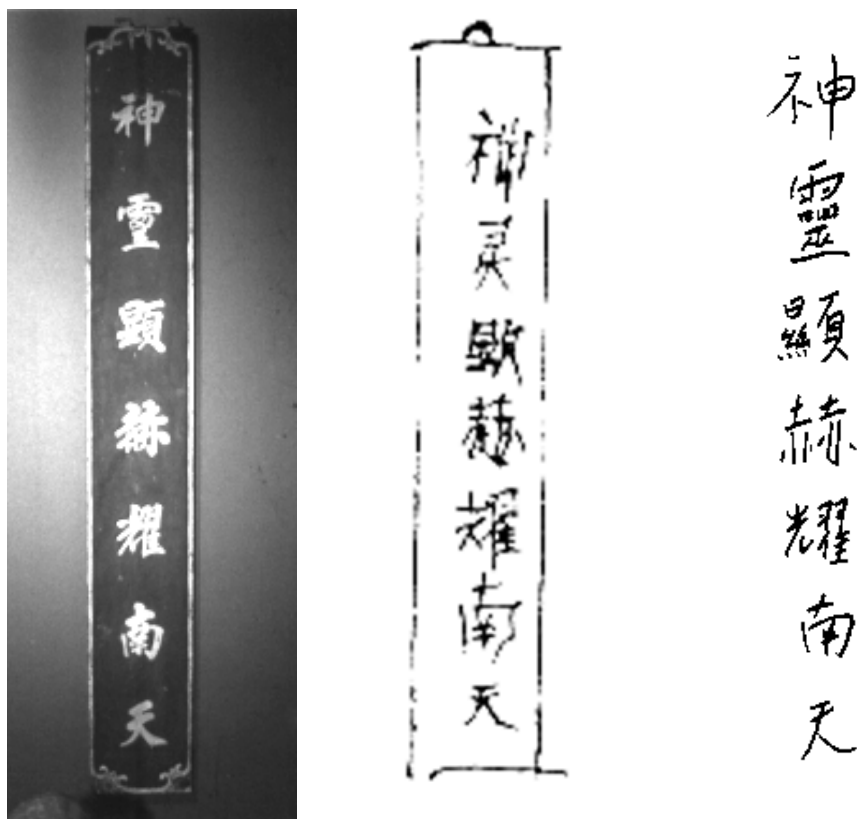 神靈顯赫耀南天
神灵顯赫耀南天
神靈顯赫耀南天